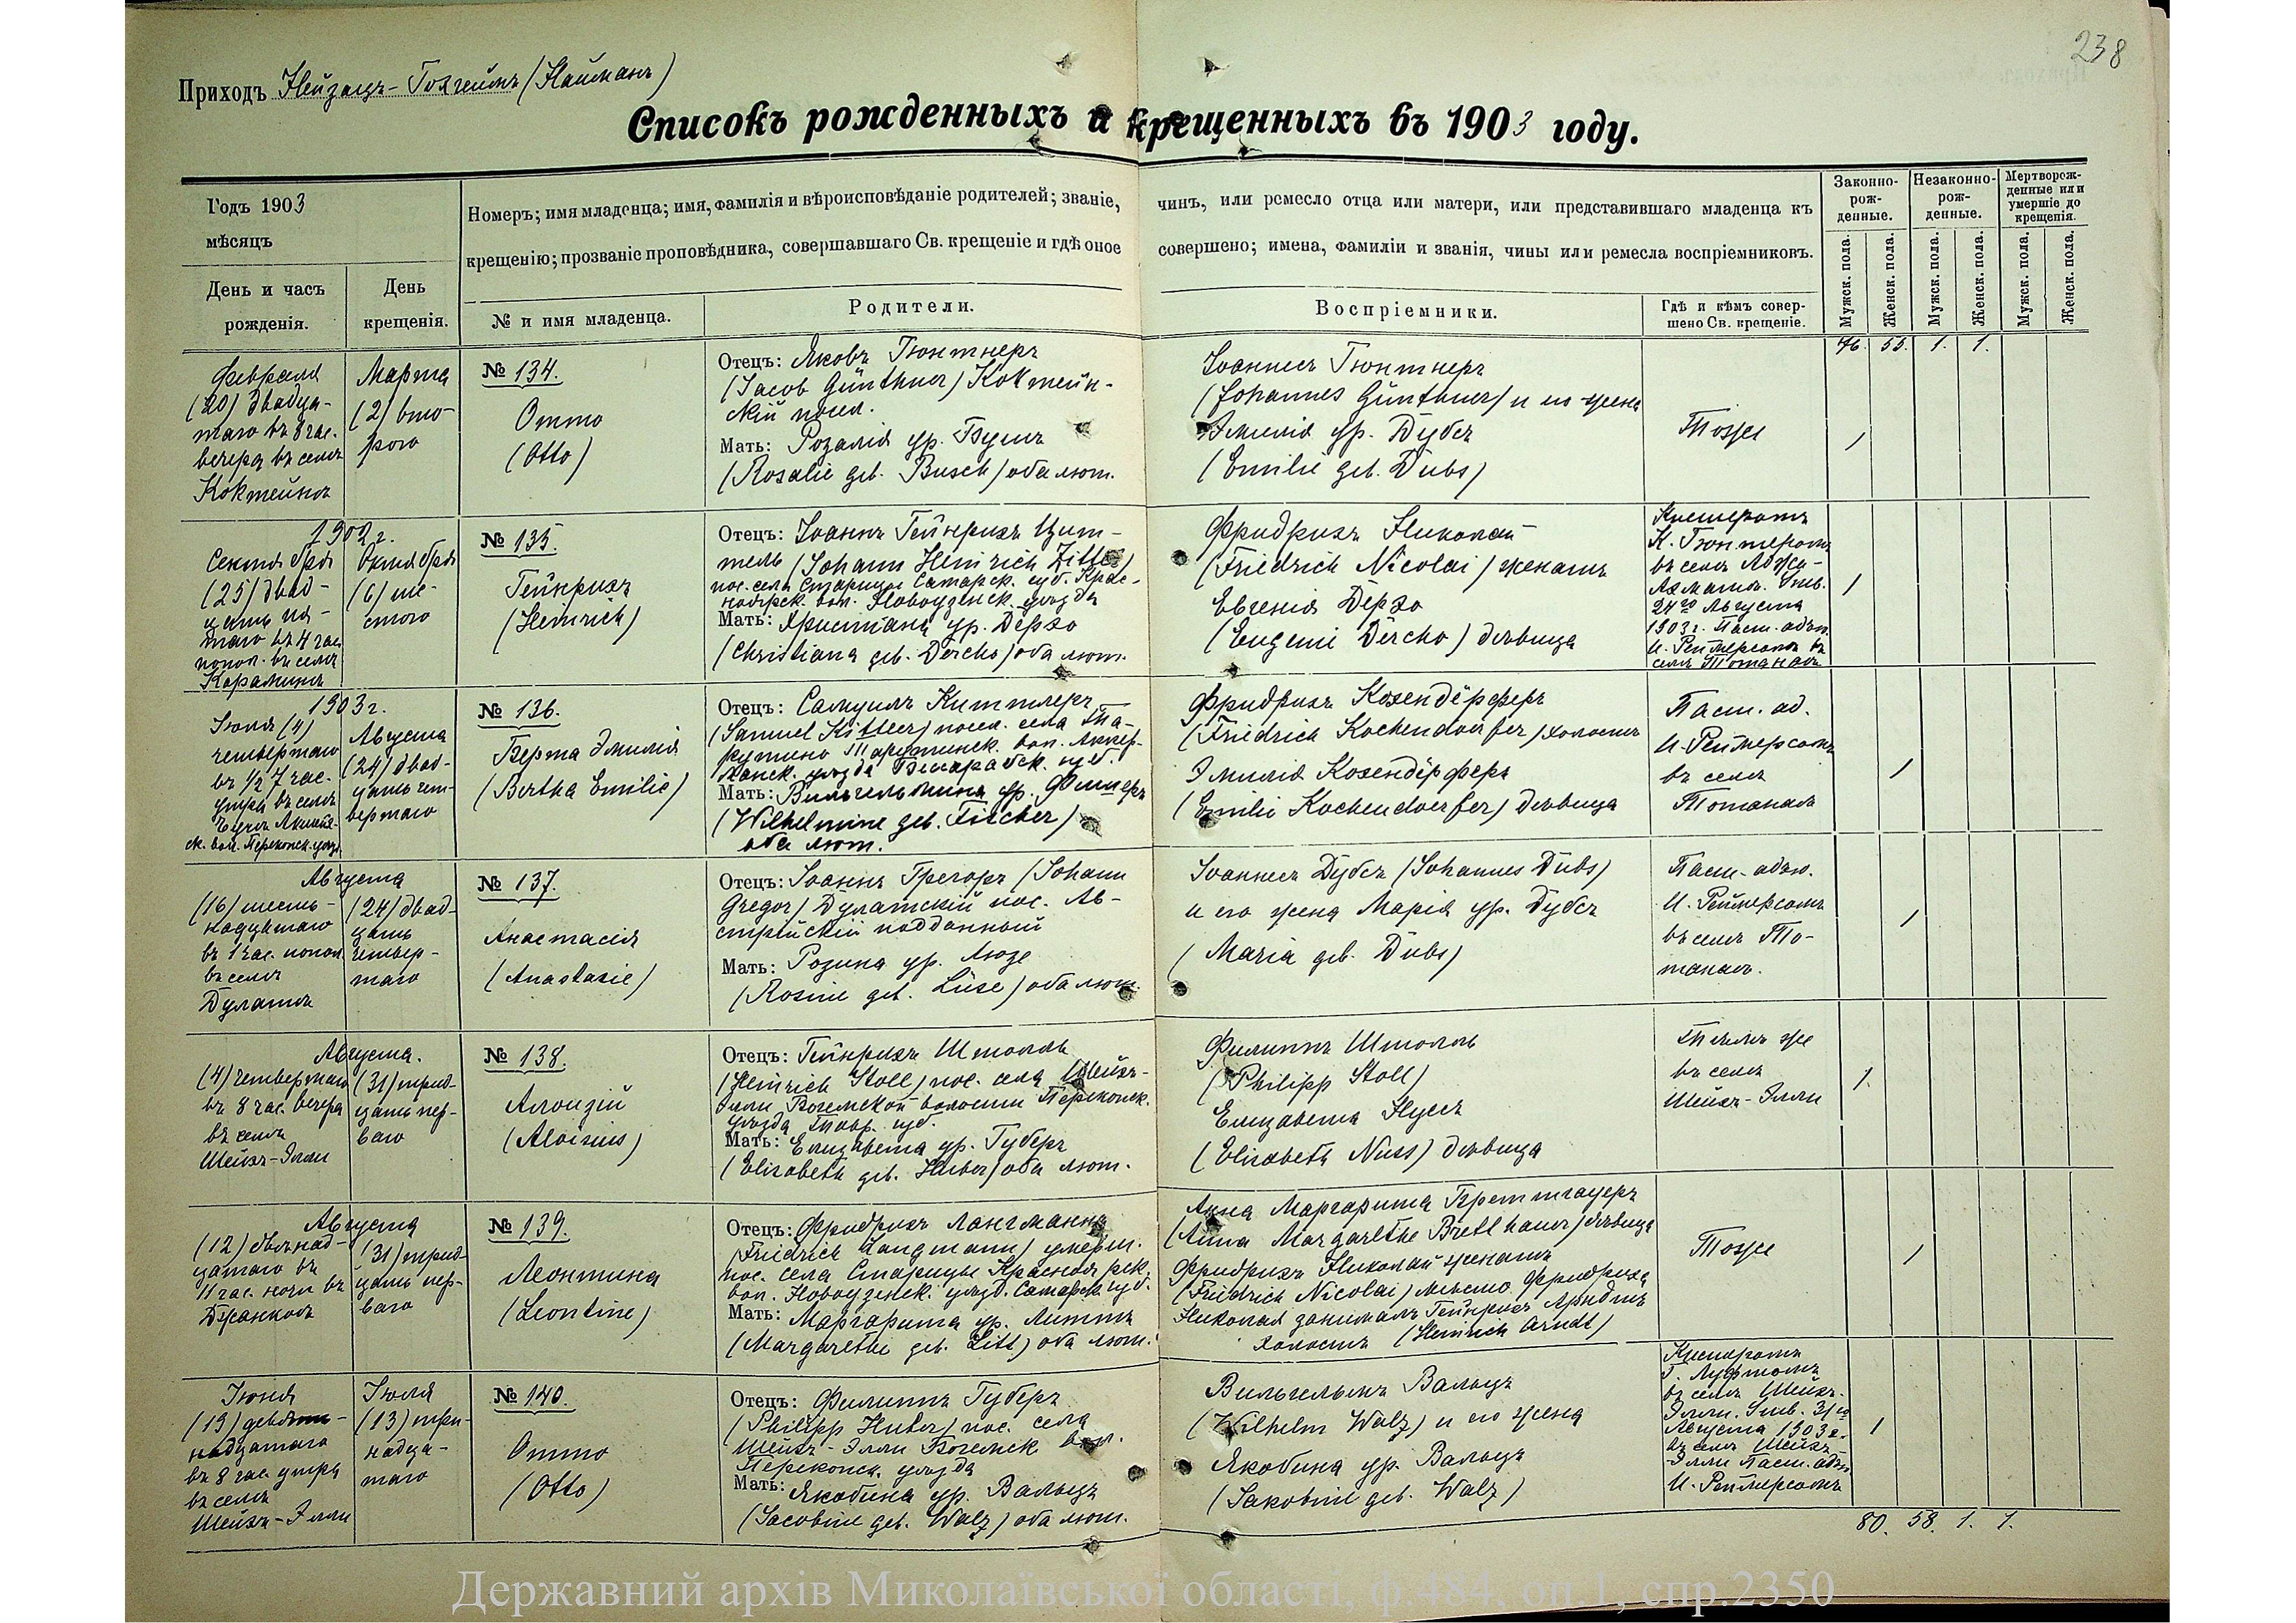 238
Приходъ Нейзацъ-Гохгеймъ (Найманъ)
Списокъ рожденныхъ и крещенныхъ въ 1903 году.
Годъ 1903
мѣсяцъ
День и часъ
рожденія.
День
крещенія.
Номеръ; имя младенца; имя, фамилія и вѣроисповѣданіе родителей; званіе,
чинъ, или ремесло отца или матери, или представившаго младенца къ
крещенію; прозваніе проповѣдника, совершавшаго Св. крещеніе и гдѣ оное
совершено; имена, фамиліи и званія, чины или ремесла воспріемниковъ.
№ и имя младенца.
Родители.
Воспріемники.
Гдѣ и кѣмъ совер-
шено Св. крещеніе.
Законно-
рож-
денные.
Незаконно-
рож-
денные.
Мертворож-
денные или
умершіе до
крещенія.
Мужск. пола.
Женск. пола.
Мужск. пола.
Женск. пола.
Мужск. пола.
Женск. пола.
76. 55. 1. 1.
Февраля
(20) двадца-
таго въ 8 час.
вечера въ селѣ
Коктеинъ
Марта
(2) вто-
рого
№ 134.
Отто
(Otto)
Отецъ: Яковъ Гюнтнеръ
(Jacob Günthner) Коктеин-
скій посел.
Мать: Розалія ур. Бушъ
(Rosalie geb. Busch) оба лют.
Іоаннесъ Гюнтнеръ
(Johannes Günthner) и его жена
Эмилія ур. Дубсъ
(Emilie geb. Dubs)
Тоже
1
1902 г.
Сентября
(25) двад-
цать пя-
таго въ 4 час.
попол. въ селѣ
Карамино
Октября
(6) ше-
стого
№ 135.
Гейнрихъ
(Heinrich)
Отецъ: Іоаннъ Гейнрихъ Цит-
тель (Johann Heinrich Zittel)
пос. села Старицы Самарск. губ. Крас-
ноярск. вол. Новоузенск. уѣзда
Мать: Христіана ур. Дерхо
(Christiana geb. Dercho) оба лют.
Фридрихъ Николай
(Friedrich Nicolai) женатъ
Евгенія Дерхо
(Eugenie Dercho) дѣвица
Кистеромъ
К. Гюнтеромъ
въ селѣ Аджи-
Ахматъ. Утв.
24го Августа
1903 г. Паст. адъю.
И. Реймерсомъ въ
селѣ Тотанай
1
1903 г.
Іюля (4)
четвертаго
въ ½ 7 час.
утра въ селѣ
вол. Перекопск. уѣзд.
Августа
(24) двад-
цать чет-
вертаго
№ 136.
Берта Эмилія
(Bertha Emilie)
Отецъ: Самуилъ Киттлеръ
(Samuel Kittler) посел. села Та-
рутино Тарутинск. вол. Аккер-
манск. уѣзда Бессарабск. губ.
Мать: Вильгельмина ур. Фишеръ
(Wilhelmine geb. Fischer)
оба лют.
Фридрихъ Кохендёрферъ
(Friedrich Kochendoerfer) холостъ
Эмилія Кохендёрферъ
(Emilie Kochendoerfer) дѣвица
Паст. ад.
И. Реймерсомъ
въ селѣ
Тотанай
1
Августа
(16) шест-
надцатаго
въ 1 час. попол.
въ селѣ
Дулатъ
(24) двад-
цать
четвер-
таго
№ 137.
Анастасія
(Anastasie)
Отецъ: Іоаннъ Грегоръ (Johann
Gregor) Дулатскій пос. Ав-
стрійскій подданный
Мать: Розина ур. Люзе
(Rosine geb. Lüse) оба лют.
Іоаннесъ Дубсъ (Johannes Dubs)
и его жена Марія ур. Дубсъ
(Maria geb. Dubs)
Паст. адъю.
И. Реймерсомъ
въ селѣ То-
танай.
1
Августа.
(4) четвертаго
въ 8 час. вечера
въ селѣ
Шейхъ-Эли
(31) трид-
цать пер-
ваго
№ 138.
Алоизій
(Aloisius)
Отецъ: Гейнрихъ Штолль
(Heinrich Stoll) пос. села Шейхъ-
Эли Богемской волости Перекопск.
уѣзда Тавр. губ.
Мать: Елизавета ур. Губеръ
(Elisabeth geb. Huber) оба лют.
Филиппъ Штолль
(Philipp Stoll)
Елизавета Нуссъ
(Elisabeth Nuss) дѣвица
Тѣмъ же
въ селѣ
Шейхъ-Эли
1.
Августа
(12) двѣнад-
цатаго въ
11 час. ночи въ
(31) трид-
цать пер-
ваго
№ 139.
Леонтина
(Leontine)
Отецъ: Фридрихъ Лангманнъ
(Friedrich Langmann) умерш.
пос. села Старицы Красноярск.
вол. Новоузенск. уѣзд. Самарск. губ.
Мать: Маргарита ур. Литтъ
(Margarethe geb. Litt) оба лют.
Анна Маргарита Бреттгауеръ
(Anna Margarethe Bretthauer) дѣвица
Фридрихъ Николай женатъ
(Friedrich Nicolai) мѣсто Фридриха
Николая занималъ Гейнрихъ Арндтъ
холостъ (Heinrich Arndt)
Тоже
1
Іюня
(19) девят-
надцатаго
въ 8 час. утра
въ селѣ
Шейхъ-Эли
Іюля
(13) три-
надца-
таго
№ 140.
Отто
(Otto)
Отецъ: Филиппъ Губеръ
(Philipp Huber) пос. села
Шейхъ-Эли Богемск вол.
Перекопск. уѣзда
Мать: Якобина ур. Вальцъ
(Jacobine geb. Walz) оба лют.
Вильгельмъ Вальцъ
(Wilhelm Walz) и его жена
Якобина ур. Вальцъ
(Jakobine geb. Walz)
Кистеромъ
Г. Луфтомъ
въ селѣ Шейхъ-
Эли. Утв. 31го
Августа 1903 г.
въ селѣ Шейхъ-
Эли Паст. адъю.
И. Реймерсомъ
1
80. 58. 1. 1.
Державний архів Миколаївської області, ф.484, оп.1, спр.2350